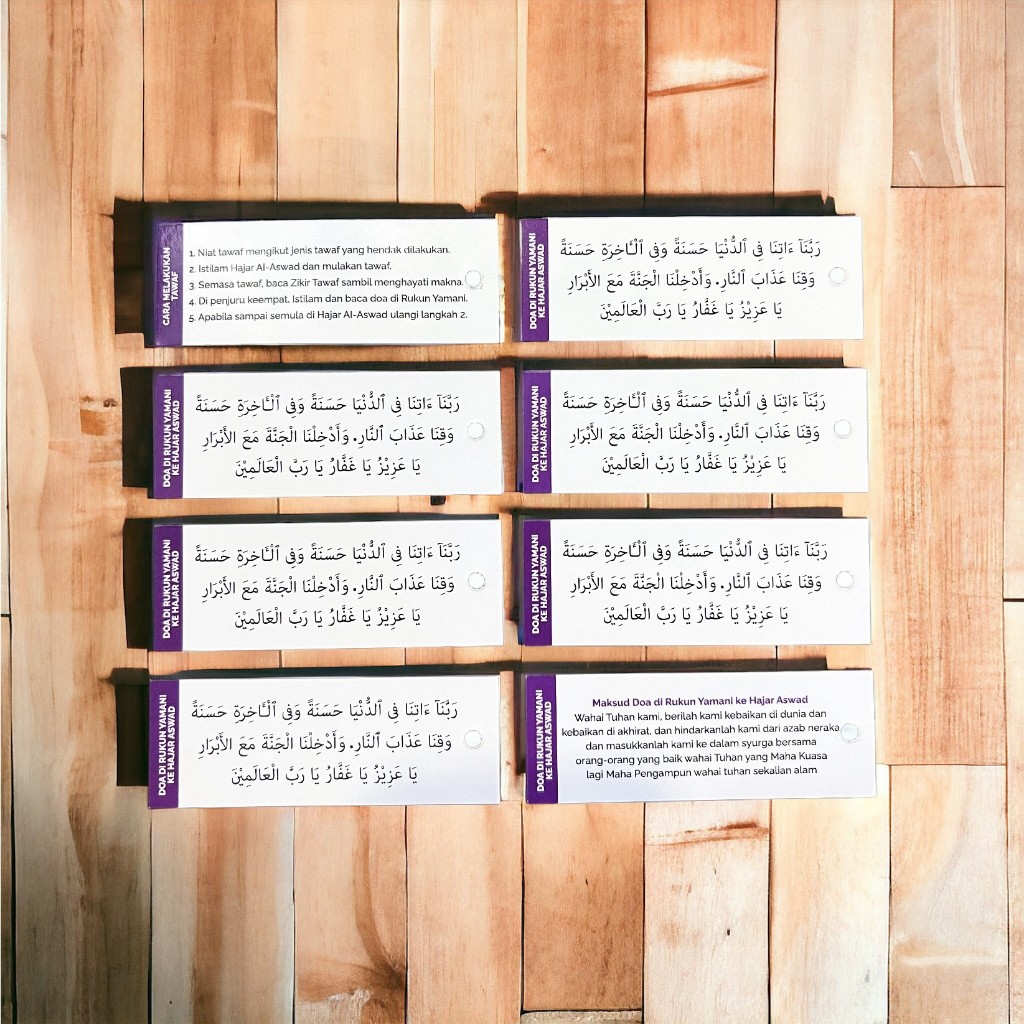 CARA MELAKUKAN
TAWAF
1. Niat tawaf mengikut jenis tawaf yang hendak dilakukan.
2. Istilam Hajar Al-Aswad dan mulakan tawaf.
3. Semasa tawaf, baca Zikir Tawaf sambil menghayati makna.
4. Di penjuru keempat, Istilam dan baca doa di Rukun Yamani.
5. Apabila sampai semula di Hajar Al-Aswad ulangi langkah 2.
DOA DI RUKUN YAMANI
KE HAJAR ASWAD
رَبَّنَآ ءَاتِنَا فِي ٱلدُّنْيَا حَسَنَةً وَفِي ٱلْـَٔاخِرَةِ حَسَنَةً
وَقِنَا عَذَابَ ٱلنَّارِ. وَأَدْخِلْنَا الْجَنَّةَ مَعَ الأَبْرَارِ
يَا عَزِيْزُ يَا غَفَّارُ يَا رَبَّ الْعَالَمِيْنَ
DOA DI RUKUN YAMANI
KE HAJAR ASWAD
رَبَّنَآ ءَاتِنَا فِي ٱلدُّنْيَا حَسَنَةً وَفِي ٱلْـَٔاخِرَةِ حَسَنَةً
وَقِنَا عَذَابَ ٱلنَّارِ. وَأَدْخِلْنَا الْجَنَّةَ مَعَ الأَبْرَارِ
يَا عَزِيْزُ يَا غَفَّارُ يَا رَبَّ الْعَالَمِيْنَ
DOA DI RUKUN YAMANI
KE HAJAR ASWAD
رَبَّنَآ ءَاتِنَا فِي ٱلدُّنْيَا حَسَنَةً وَفِي ٱلْـَٔاخِرَةِ حَسَنَةً
وَقِنَا عَذَابَ ٱلنَّارِ. وَأَدْخِلْنَا الْجَنَّةَ مَعَ الأَبْرَارِ
يَا عَزِيْزُ يَا غَفَّارُ يَا رَبَّ الْعَالَمِيْنَ
DOA DI RUKUN YAMANI
KE HAJAR ASWAD
رَبَّنَآ ءَاتِنَا فِي ٱلدُّنْيَا حَسَنَةً وَفِي ٱلْـَٔاخِرَةِ حَسَنَةً
وَقِنَا عَذَابَ ٱلنَّارِ. وَأَدْخِلْنَا الْجَنَّةَ مَعَ الأَبْرَارِ
يَا عَزِيْزُ يَا غَفَّارُ يَا رَبَّ الْعَالَمِيْنَ
DOA DI RUKUN YAMANI
KE HAJAR ASWAD
رَبَّنَآ ءَاتِنَا فِي ٱلدُّنْيَا حَسَنَةً وَفِي ٱلْـَٔاخِرَةِ حَسَنَةً
وَقِنَا عَذَابَ ٱلنَّارِ. وَأَدْخِلْنَا الْجَنَّةَ مَعَ الأَبْرَارِ
يَا عَزِيْزُ يَا غَفَّارُ يَا رَبَّ الْعَالَمِيْنَ
DOA DI RUKUN YAMANI
KE HAJAR ASWAD
رَبَّنَآ ءَاتِنَا فِي ٱلدُّنْيَا حَسَنَةً وَفِي ٱلْـَٔاخِرَةِ حَسَنَةً
وَقِنَا عَذَابَ ٱلنَّارِ. وَأَدْخِلْنَا الْجَنَّةَ مَعَ الأَبْرَارِ
يَا عَزِيْزُ يَا غَفَّارُ يَا رَبَّ الْعَالَمِيْنَ
DOA DI RUKUN YAMANI
KE HAJAR ASWAD
Maksud Doa di Rukun Yamani ke Hajar Aswad
Wahai Tuhan kami, berilah kami kebaikan di dunia dan
kebaikan di akhirat, dan hindarkanlah kami dari azab neraka
dan masukkanlah kami ke dalam syurga bersama
orang-orang yang baik wahai Tuhan yang Maha Kuasa
lagi Maha Pengampun wahai tuhan sekalian alam